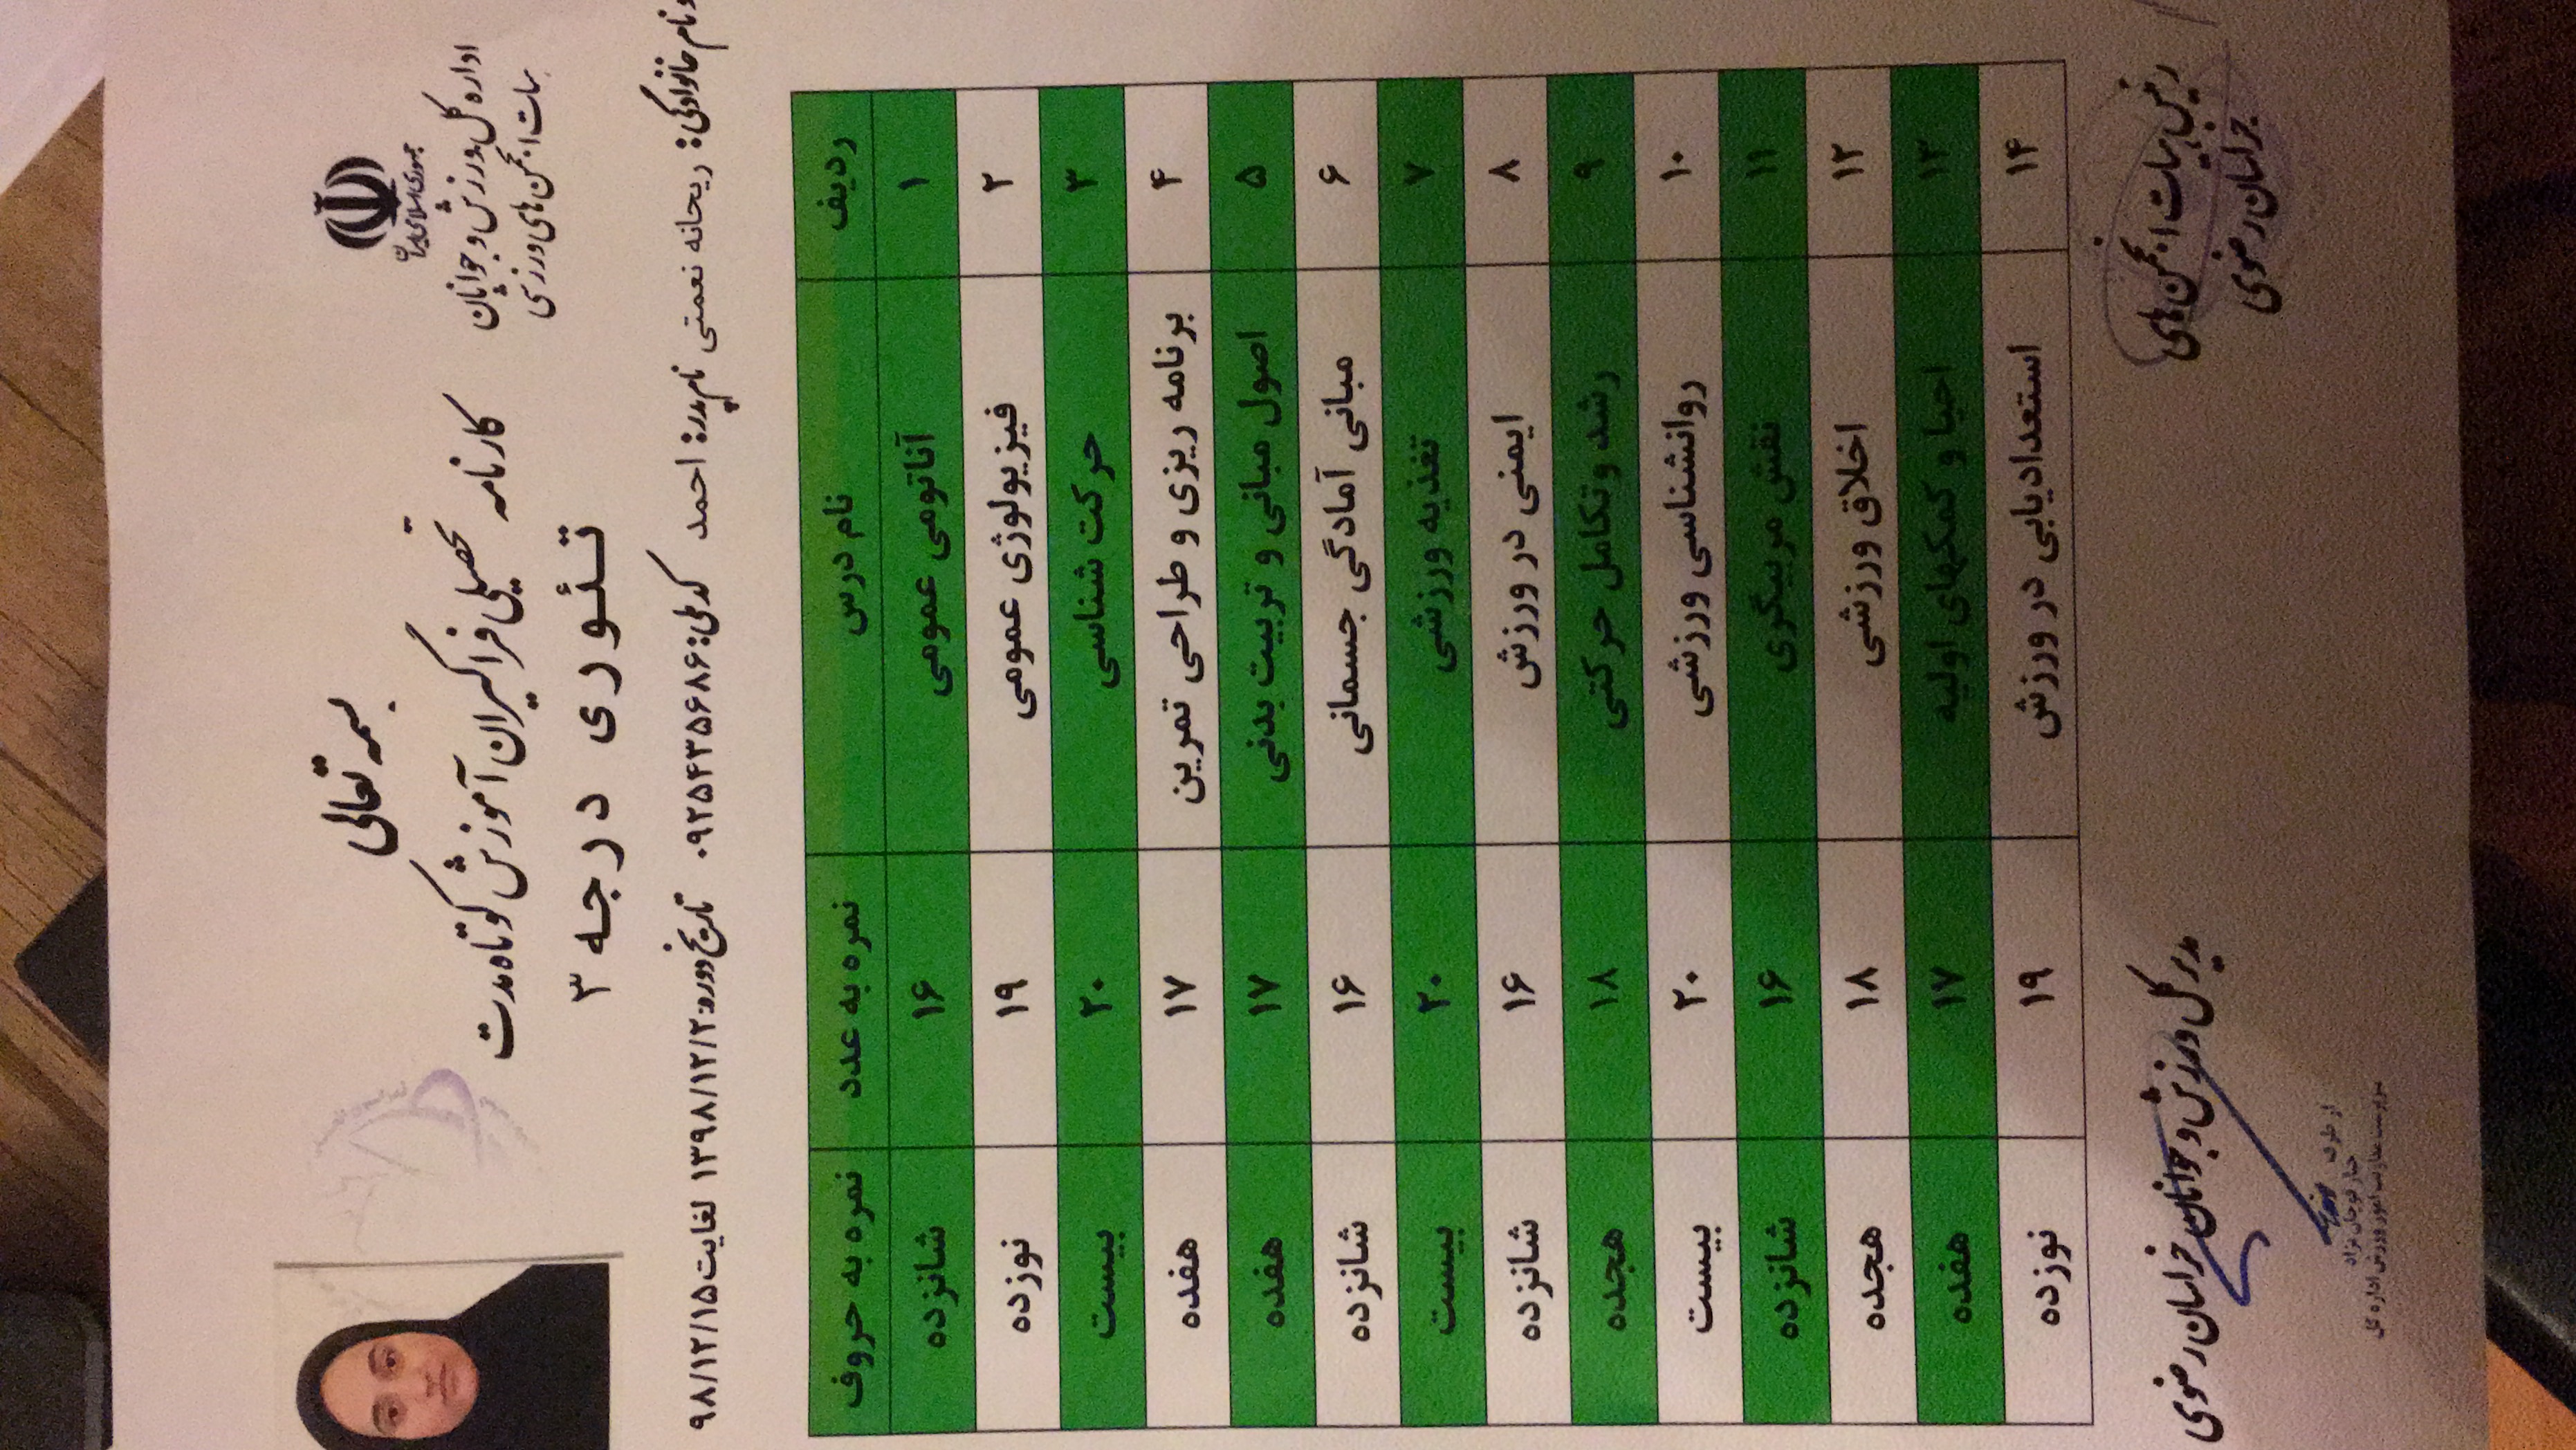 بسمه تعالی
جمهوری اسلامی ایران
اداره کل ورزش و جوانان
هیات انجمن های ورزشی
کارنامه تحصیلی فراگیران آموزش کوتاه مدت
تئوری درجه ۳
نام خانوادگی: ریحانه نعمتی نام پدر: احمد کد ملی: ۰۹۲۵۴۳۵۶۸۶ تاریخ دوره: ۱۳۹۸/۱۲/۲ لغایت ۹۸/۱۲/۱۵
ردیف نام درس نمره به عدد نمره به حروف
۱ آناتومی عمومی ۱۶ شانزده
۲ فیزیولوژی عمومی ۱۹ نوزده
۳ حرکت شناسی ۲۰ بیست
۴ برنامه ریزی و طراحی تمرین ۱۷ هفده
۵ اصول مبانی و تربیت بدنی ۱۷ هفده
۶ مبانی آمادگی جسمانی ۱۶ شانزده
۷ تغذیه ورزشی ۲۰ بیست
۸ ایمنی در ورزش ۱۶ شانزده
۹ رشد و تکامل حرکتی ۱۸ هجده
۱۰ روانشناسی ورزشی ۲۰ بیست
۱۱ نقش مربیگری ۱۶ شانزده
۱۲ اخلاق ورزشی ۱۸ هجده
۱۳ احیا و کمکهای اولیه ۱۷ هفده
۱۴ استعدادیابی در ورزش ۱۹ نوزده
رئیس هیات انجمن های
خراسان رضوی
مدیر کل ورزش و جوانان خراسان رضوی
از طرف
سرپرست معاونت امور ورزش اداره کل